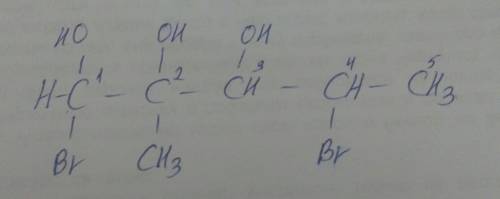 HO OH OH
H-C¹ - C² - CH³ - CH⁴ - C⁵H₃
Br CH₃ Br